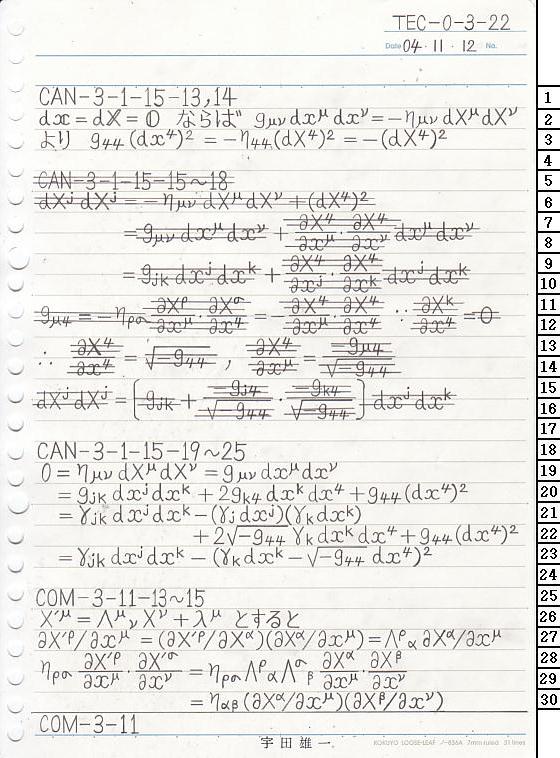 TEC-0-3-22
Date 04・11・12 No.
CAN-3-1-15-13,14
dx = dX = 0 ならば g_{μν}dx^μdx^ν = -η_{μν}dX^μdX^ν
より g_{44}(dx^4)^2 = -η_{44}(dX^4)^2 = -(dX^4)^2
CAN-3-1-15-15~18
dX^j dX^j = -η_{μν}dX^μdX^ν + (dX^4)^2
= g_{μν}dx^μdx^ν + ∂X^4/∂x^μ・∂X^4/∂x^ν dx^μdx^ν
= g_{jk}dx^jdx^k + ∂X^4/∂x^j・∂X^4/∂x^k dx^jdx^k
g_{μ4} = -η_{ρσ} ∂X^ρ/∂x^μ・∂X^σ/∂x^4 = -∂X^4/∂x^μ・∂X^4/∂x^4 ∵ ∂X^k/∂x^4 = 0
∴ ∂X^4/∂x^4 = √-g_{44} , ∂X^4/∂x^μ = -g_{μ4}/√-g_{44}
dX^jdX^j = [g_{jk} + -g_{j4}/√-g_{44}・-g_{k4}/√-g_{44}] dx^jdx^k
CAN-3-1-15-19~25
0 = η_{μν}dX^μdX^ν = g_{μν}dx^μdx^ν
= g_{jk}dx^jdx^k + 2g_{k4}dx^kdx^4 + g_{44}(dx^4)^2
= γ_{jk}dx^jdx^k - (γ_jdx^j)(γ_kdx^k)
+ 2√-g_{44} γ_kdx^kdx^4 + g_{44}(dx^4)^2
= γ_{jk}dx^jdx^k - (γ_kdx^k - √-g_{44} dx^4)^2
COM-3-11-13~15
X'^μ = Λ^μ_νX^ν + λ^μ とすると
∂X'^ρ/∂x^μ = (∂X'^ρ/∂X^α)(∂X^α/∂x^μ) = Λ^ρ_α∂X^α/∂x^μ
η_{ρσ} ∂X'^ρ/∂x^μ・∂X'^σ/∂x^ν = η_{ρσ}Λ^ρ_αΛ^σ_β ∂X^α/∂x^μ・∂X^β/∂x^ν
= η_{αβ}(∂X^α/∂x^μ)(∂X^β/∂x^ν)
COM-3-11
宇田雄一
KOKUYO LOOSE-LEAF ノ-836A 7mm ruled 31 lines
1
2
3
4
5
6
7
8
9
10
11
12
13
14
15
16
17
18
19
20
21
22
23
24
25
26
27
28
29
30